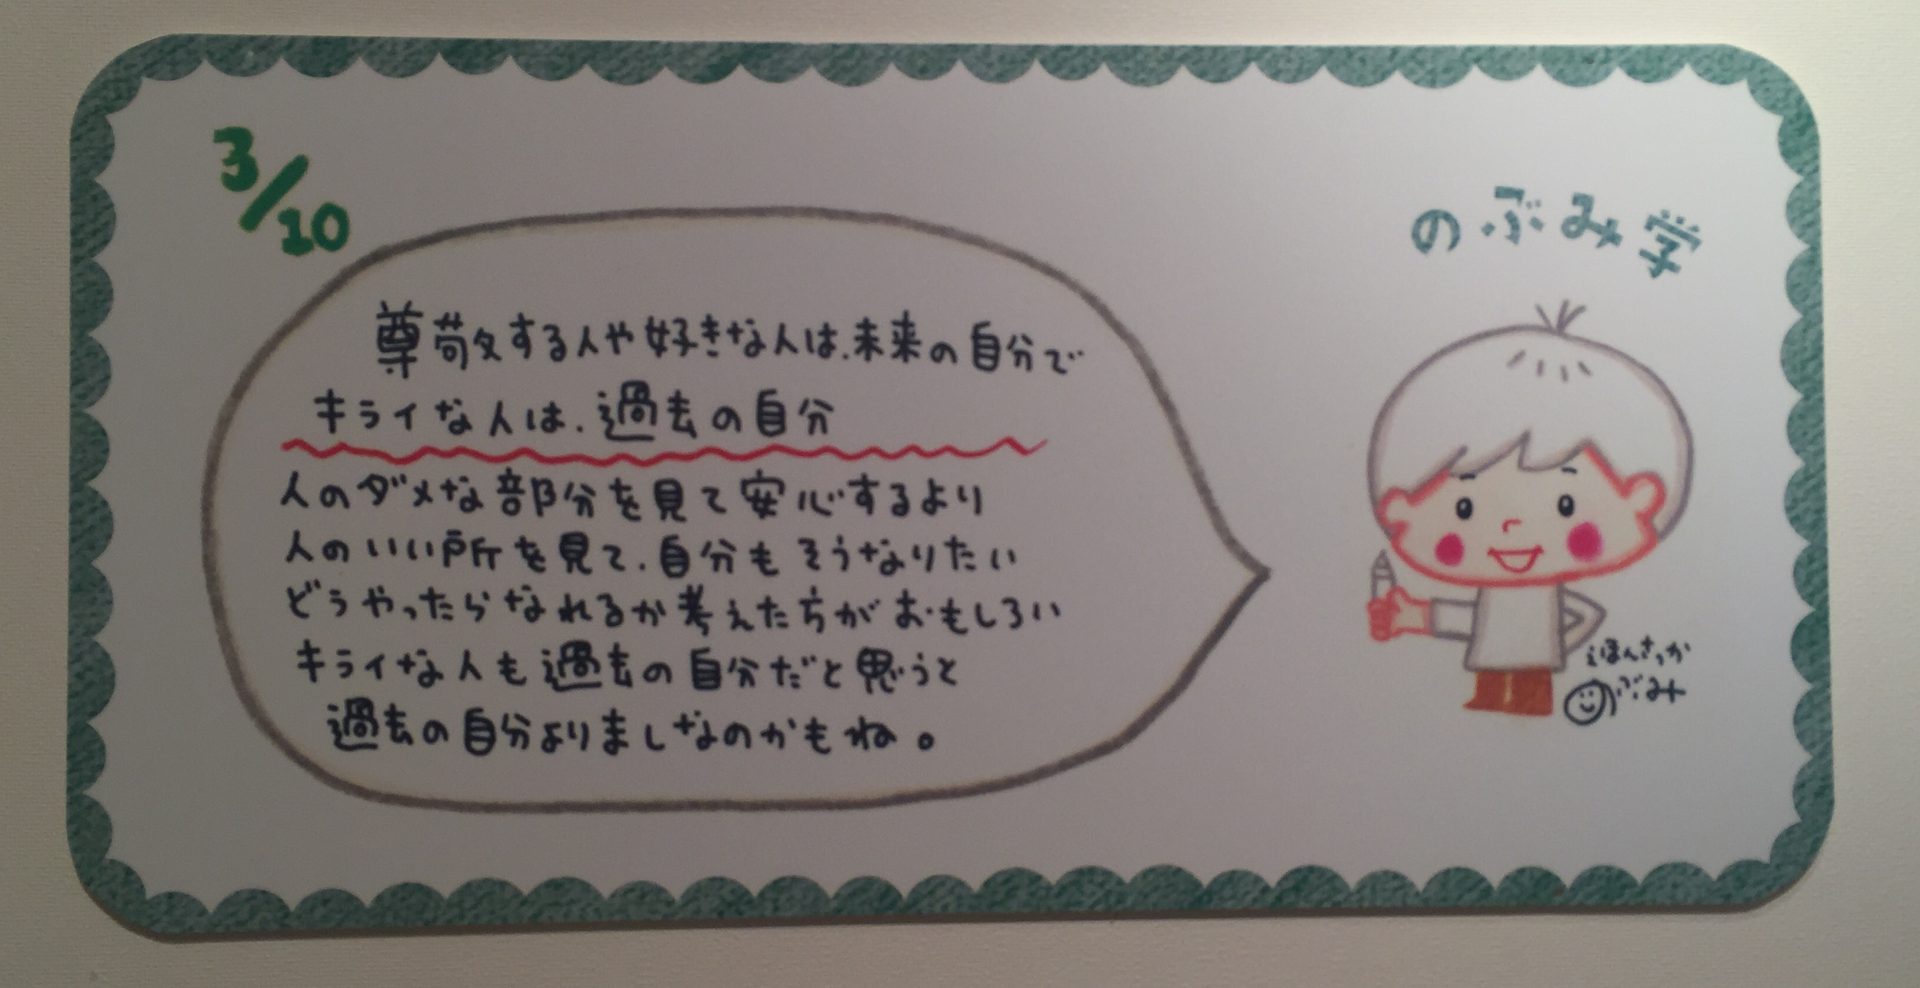 3/10
のぶみ学
尊敬する人や好きな人は、未来の自分で
キライな人は、過去の自分
人のダメな部分を見て安心するより
人のいい所を見て、自分もそうなりたい
どうやったらなれるか考えた方がおもしろい
キライな人も過去の自分だと思うと
過去の自分よりましなのかもね。
えほんさっか
のぶみ